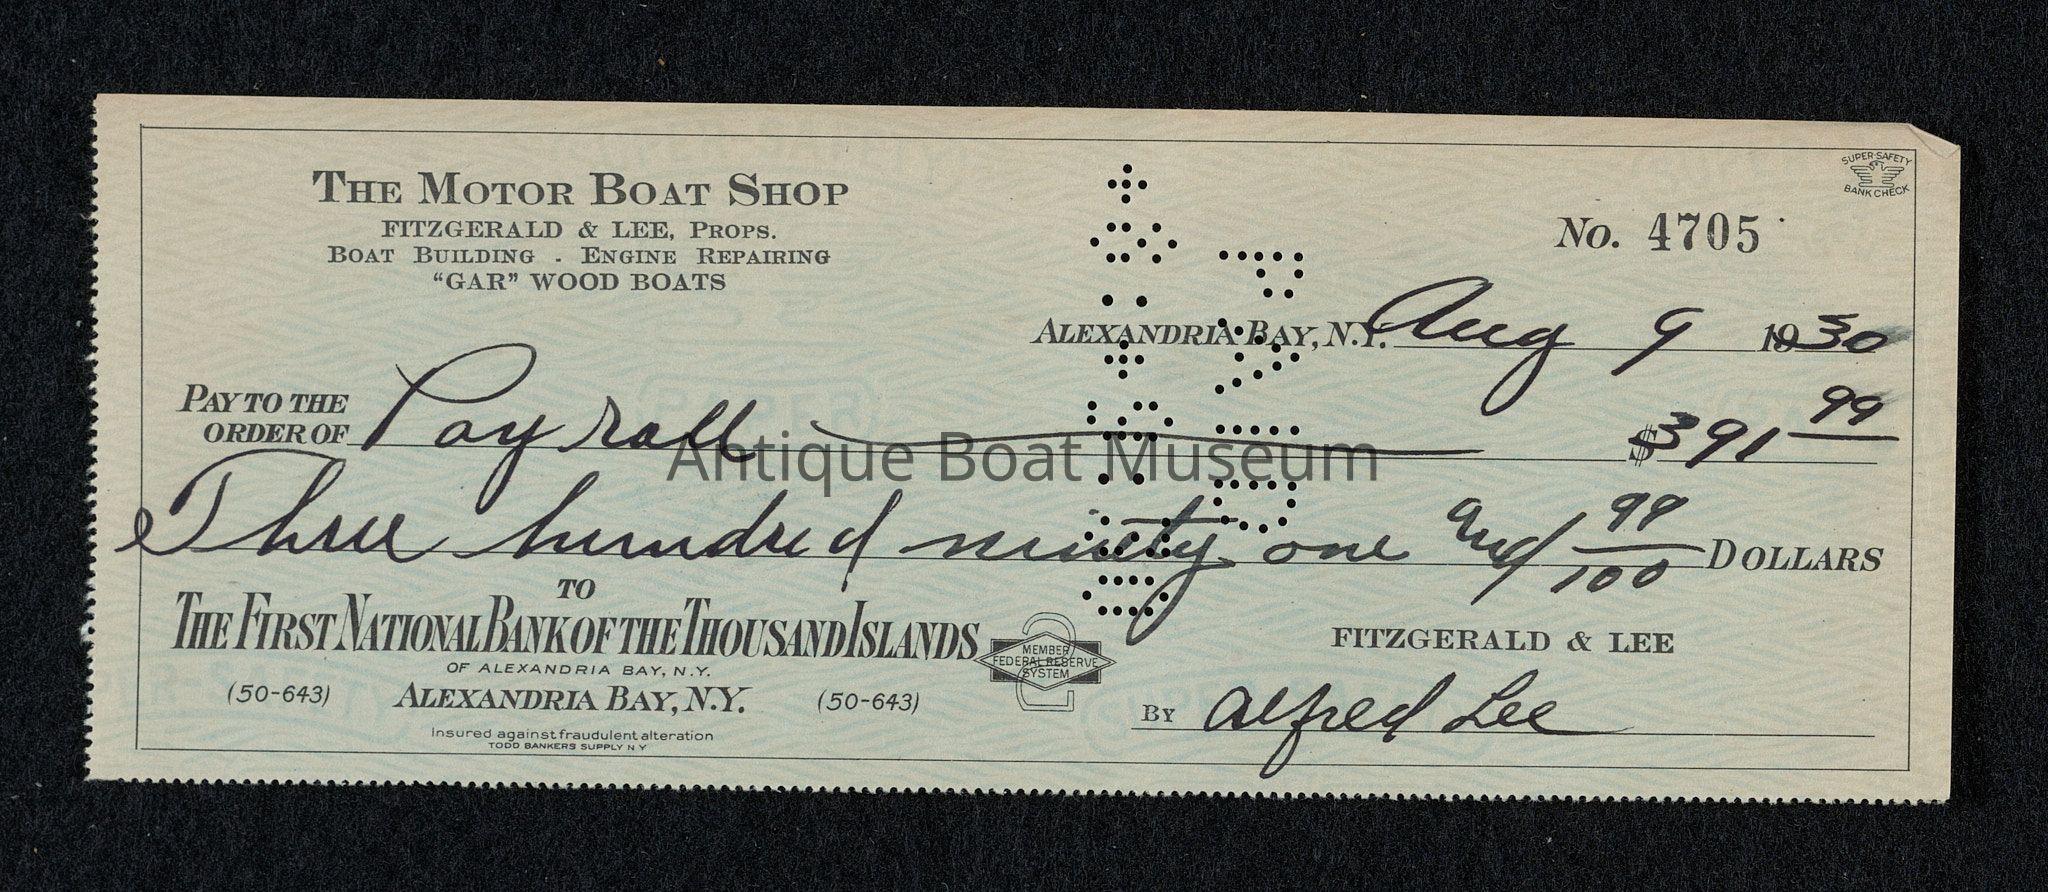 THE MOTOR BOAT SHOP
FITZGERALD & LEE, PROPS.
BOAT BUILDING . ENGINE REPAIRING
"GAR" WOOD BOATS
SUPER-SAFETY
BANK CHECK
No. 4705
ALEXANDRIA BAY, N.Y. Aug 9 1930
PAY TO THE ORDER OF Payroll $391 99
Three hundred ninety one and 99/100 DOLLARS
TO
THE FIRST NATIONAL BANK OF THE THOUSAND ISLANDS
OF ALEXANDRIA BAY, N.Y.
(50-643) ALEXANDRIA BAY, N.Y. (50-643)
Insured against fraudulent alteration
TODD BANKERS SUPPLY N Y
MEMBER
FEDERAL RESERVE
SYSTEM
FITZGERALD & LEE
BY Alfred Lee
Antique Boat Museum